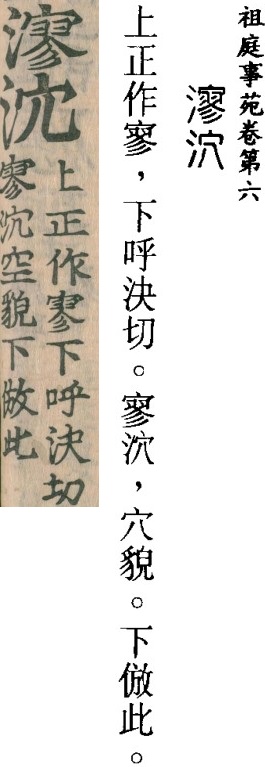 祖庭事苑卷第六
漻泬
上正作寥，下呼決切。寥泬，穴貌。下倣此。
漻泬
上正作寥下呼決切
寥泬空貌下倣此